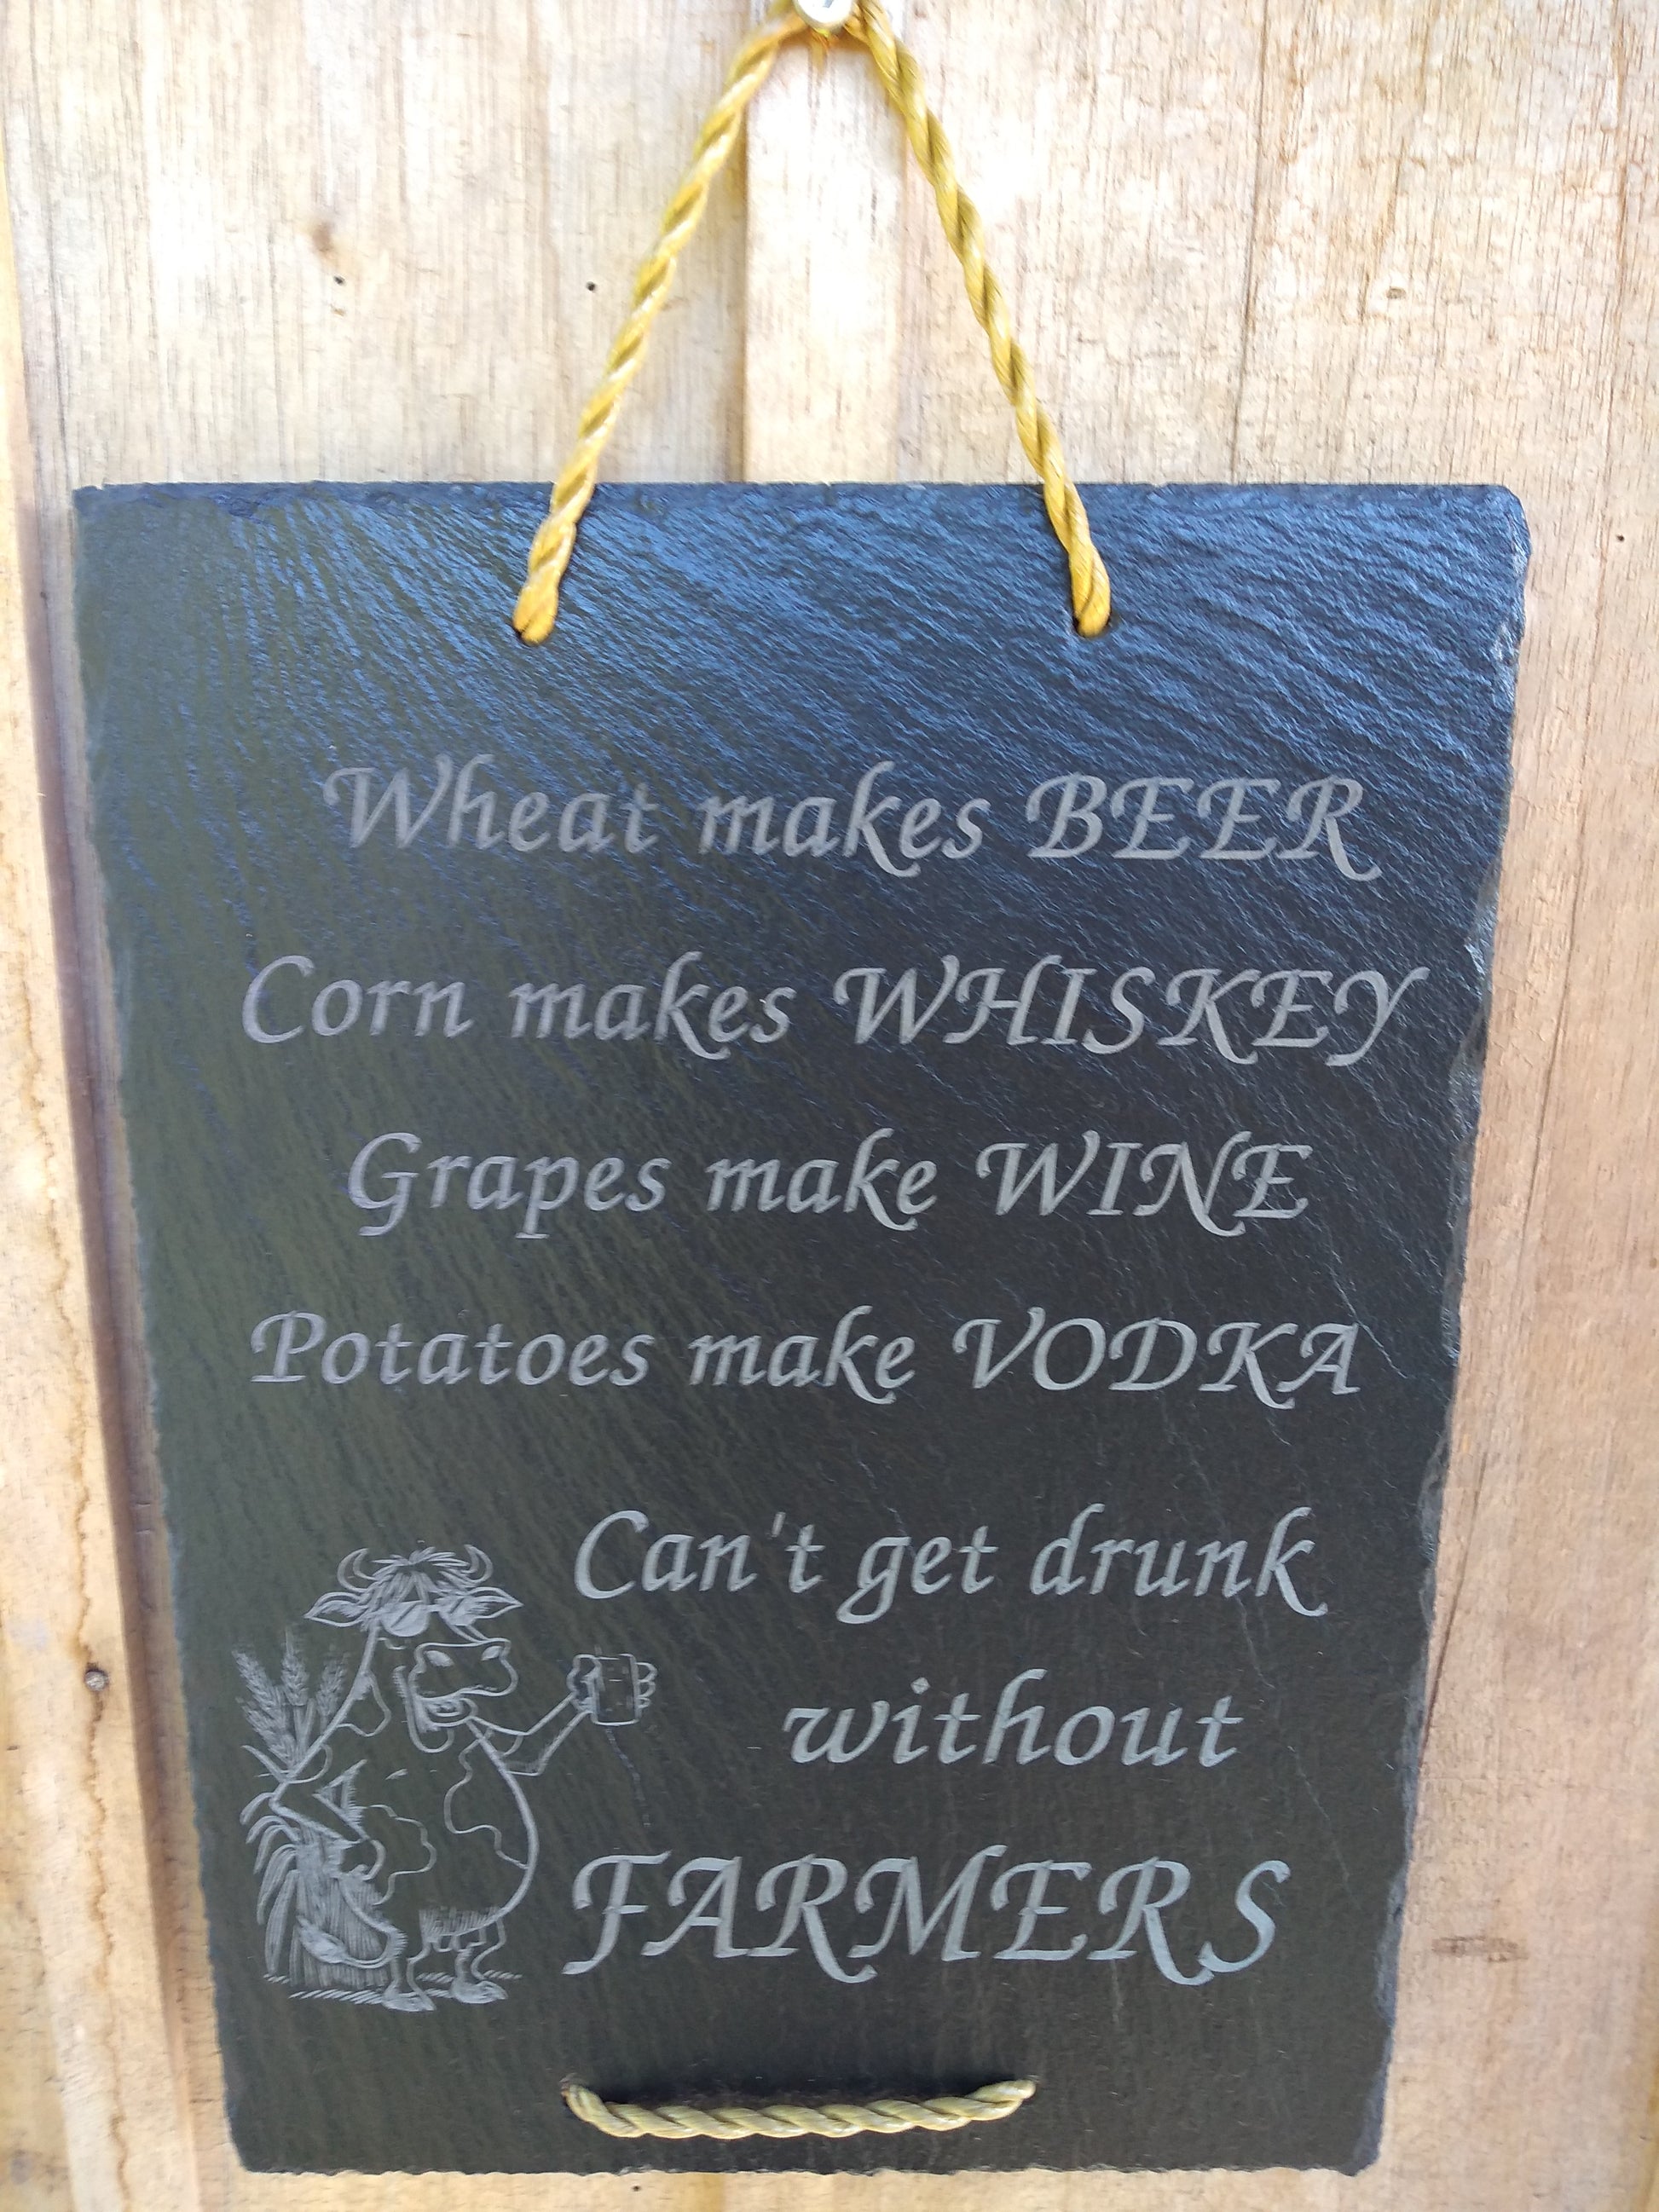 Wheat makes BEER
Corn makes WHISKEY
Grapes make WINE
Potatoes make VODKA
Can't get drunk
without
FARMERS